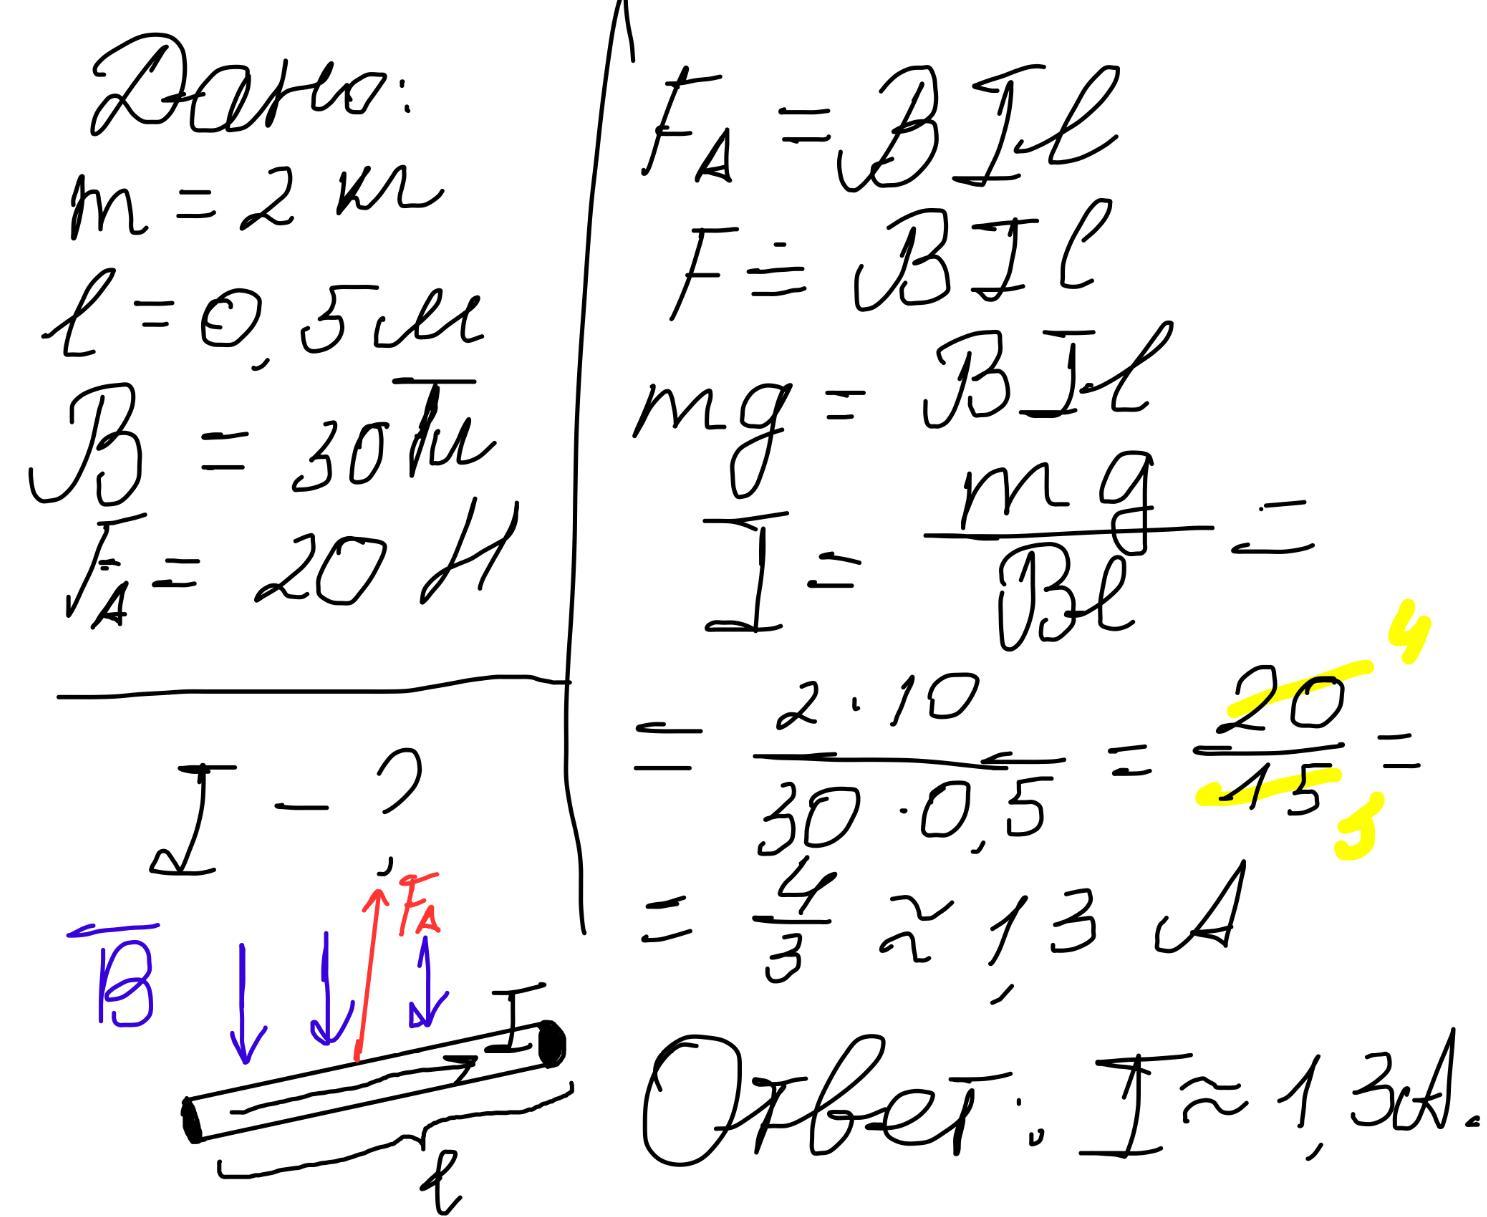 Дано:
m = 2 кг
l = 0,5 м
B = 30 Тл
F_A = 20 Н
I - ?
F_A
B
I
l
F_A = BIl
F = BIl
mg = BIl
I = mg / Bl =
= 2 · 10 / 30 · 0,5 = 20 / 15 =
4
3
= 4 / 3 ≈ 1,3 А
Ответ: I ≈ 1,3А.